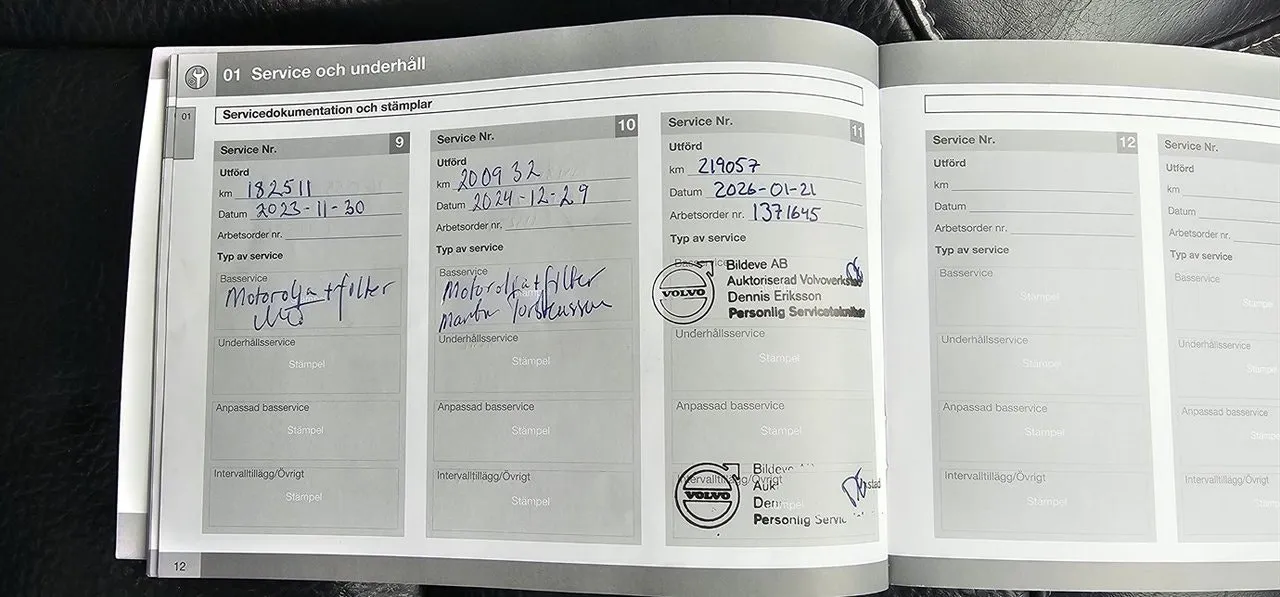 01 Service och underhåll
Servicedokumentation och stämplar
01
Service Nr. 9
Utförd
km 182511
Datum 2023-11-30
Arbetsorder nr.
Typ av service
Basservice
Motorolja+filter
Underhållsservice
Stämpel
Anpassad basservice
Stämpel
Intervalltillägg/Övrigt
Stämpel
Service Nr. 10
Utförd
km 200932
Datum 2024-12-29
Arbetsorder nr.
Typ av service
Basservice
Motorolja+filter
Torstensson
Underhållsservice
Stämpel
Anpassad basservice
Stämpel
Intervalltillägg/Övrigt
Stämpel
Service Nr. 11
Utförd
km 219057
Datum 2026-01-21
Arbetsorder nr. 1371645
Typ av service
Basservice
VOLVO
Bildeve AB
Auktoriserad Volvoverkstad
Dennis Eriksson
Personlig Servicetekniker
Underhållsservice
Stämpel
Anpassad basservice
Stämpel
Intervalltillägg/Övrigt
VOLVO
Bildeve
Stämpel
Personlig
Service Nr. 12
Utförd
km
Datum
Arbetsorder nr.
Typ av service
Basservice
Stämpel
Underhållsservice
Stämpel
Anpassad basservice
Stämpel
Intervalltillägg/Övrigt
Stämpel
Service Nr.
Utförd
km
Datum
Arbetsorder nr.
Typ av service
Basservice
Underhållsservice
Anpassad basservice
Intervalltillägg/Övrigt
12